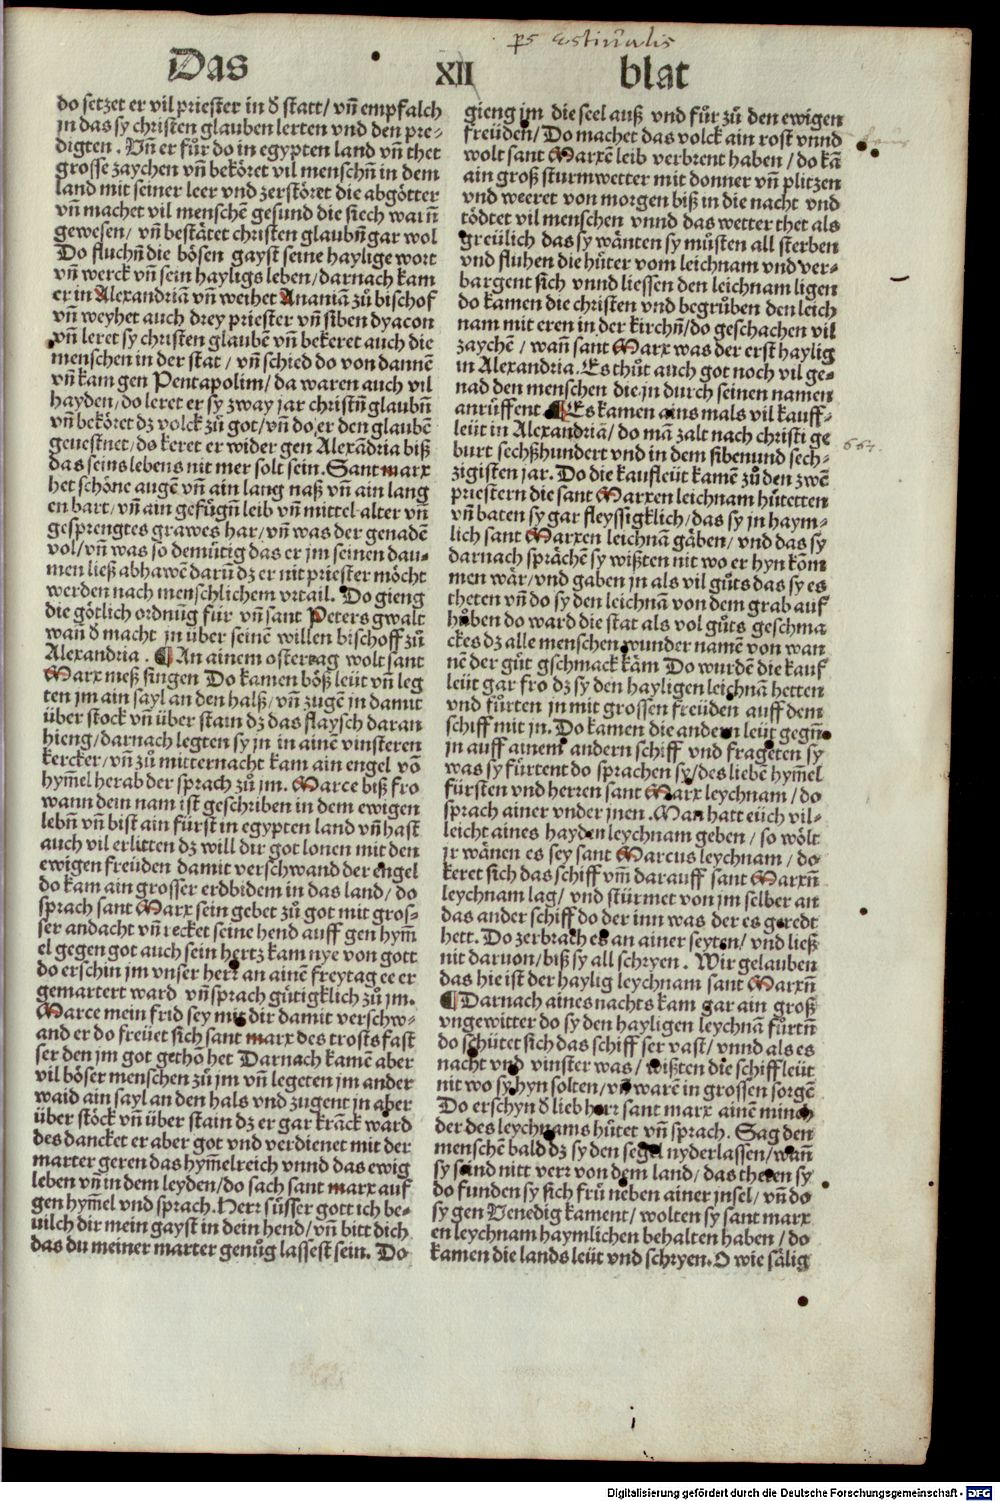 ps Estiualis
Das XII blat
do setzet er vil priester in d̕ statt/ vn̄ empfalch
jn das sy christen glauben lerten vnd den pre⸗
digten. Vn̄ er fůr do in egypten land vn̄ thet
grosse zaychen vn̄ beköret vil menschn̄ in dem
land mit seiner leer vnd zerstöret die abgötter
vn̄ machet vil menschē gesund die siech warn̄
gewesen/ vn̄ bestätet christen glaubn̄ gar wol
Do fluchn̄ die bösen gayst seine haylige wort
vn̄ werck vn̄ sein hayligs leben/ darnach kam
er in Alexandriā vn̄ weihet Ananiā zů bischof
vn̄ weyhet auch drey priester vn̄ siben dyacon
vn̄ leret sy christen glaubē vn̄ bekeret auch die
menschen in der stat/ vn̄ schied do von dannē
vn̄ kam gen Pentapolim/ da waren auch vil
hayden/ do leret er sy zway jar christn̄ glaubn̄
vn̄ beköret dz volck zů got/ vn̄ do er den glaubē
geuestnet/ do keret er wider gen Alexādria biß
das seins lebens nit mer solt sein. Sant marx
het schöne augē vn̄ ain lang naß vn̄ ain lang
en bart/ vn̄ ain gefůgn̄ leib vn̄ mittel alter vn̄
gesprengtes grawes har/ vn̄ was der genadē
vol/ vn̄ was so demütig das er jm seinen dau⸗
men ließ abhawē darū dz er nit priester möcht
werden nach menschlichem vrtail. Do gieng
die götlich ordnūg für vn̄ sant Peters gwalt
wan̄ d̕ macht jn über seinē willen bischoff zů
Alexandria. ¶ An ainem ostertag wolt sant
Marx meß singen Do kamen böß leüt vn̄ leg
ten jm ain sayl an den halß/ vn̄ zugē jn damit
über stock vn̄ über stain dz das flaysch daran
hieng/ darnach legten sy jn in ainē vinsteren
kercker/ vn̄ zů mitternacht kam ain engel vō
hym̄el herab der sprach zů jm. Marce biß fro
wann dein nam ist geschriben in dem ewigen
lebn̄ vn̄ bist ain fürst in egypten land vn̄ hast
auch vil erlitten dz will dir got lonen mit den
ewigen freüden damit verschwand der engel
do kam ain grosser erdbidem in das land/ do
sprach sant Marx sein gebet zů got mit gros⸗
ser andacht vn̄ recket seine hend auff gen hym̄
el gegen got auch sein hertz kam nye von gott
do erschin jm vnser herr an ainē freytag ee er
gemartert ward vn̄ sprach gütigklich zů jm.
Marce mein frid sey mit dir damit verschw⸗
and er do freüet sich sant marx des trosts fast
ser den jm got gethō het Darnach kamē aber
vil böser menschen zů jm vn̄ legeten jm ander
waid ain sayl an den hals vnd zugent jn aber
über stöck vn̄ über stain dz er gar krāck ward
des dancket er aber got vnd verdienet mit der
marter geren das hym̄elreich vnnd das ewig
leben vn̄ in dem leyden/ do sach sant marx auf
gen hym̄el vnd sprach. Herr süsser gott ich be⸗
uilch dir mein gayst in dein hend/ vn̄ bitt dich
das du meiner marter genůg lassest sein. Do
gieng jm die seel auß vnd fůr zů den ewigen
freüden/ Do machet das volck ain rost vnnd
wolt sant Marxē leib verbrent haben/ do kā
ain groß sturmwetter mit donner vn̄ plitzen
vnd weeret von morgen biß in die nacht vnd
tödtet vil menschen vnnd das wetter thet als
greülich das sy wänten sy můsten all sterben
vnd fluhen die hüter vom leichnam vnd ver⸗
bargent sich vnnd liessen den leichnam ligen
do kamen die christen vnd begrůben den leich
nam mit eren in der kirchn̄/ do geschachen vil
zaychē/ wan̄ sant Marx was der erst haylig
in Alexandria. Es thůt auch got noch vil ge⸗
nad den menschen die jn durch seinen namen
anrůffent ¶ Es kamen ains mals vil kauff⸗
leüt in Alexandriā/ do mā zalt nach christi ge
burt sechßhundert vnd in dem sibenund sech⸗
zigisten jar. Do die kaufleüt kamē zů den zwē
priestern die sant Marxen leichnam hütetten
vn̄ baten sy gar fleyssigklich/ das sy jn haym⸗
lich sant Marxen leichnā gäben/ vnd das sy
darnach sprächē sy wißten nit wo er hyn kōm
men wär/ vnd gaben jn als vil gůts das sy es
theten vn̄ do sy den leichnā von dem grab auf
hůben do ward die stat als vol gůts geschma
ckes dz alle menschen wunder namē von wan
nē der gůt gschmack käm Do wurdē die kauf
leüt gar fro dz sy den hayligen leichnā hetten
vnd fůrten jn mit grossen freüden auff dem
schiff mit jn. Do kamen die andern leüt gegn̄
jn auff ainem andern schiff vnd frageten sy
was sy fürtent do sprachen sy/ des liebē hym̄el
fürsten vnd herren sant Marx leychnam/ do
sprach ainer vnder jnen. Man hatt eüch vil⸗
leicht aines hayden leychnam geben/ so wölt
jr wänen es sey sant Marcus leychnam/ do
keret sich das schiff vm̄ darauff sant Marxn̄
leychnam lag/ vnd stürmet von jm selber an
das ander schiff do der inn was der es geredt
hett. Do zerbrach es an ainer seyten/ vnd ließ
nit daruon/ biß sy all schryen. Wir gelauben
das hie ist der haylig leychnam sant Marxn̄
¶ Darnach aines nachts kam gar ain groß
vngewitter do sy den hayligen leychnā fůrtn̄
do schütet sich das schiff ser vast/ vnnd als es
nacht vnd vinster was/ wißten die schiffleüt
nit wo sy hyn solten/ vn̄ warē in grossen sorgē
Do erschyn d̕ lieb herr sant marx ainē münch
der des leychnams hütet vn̄ sprach. Sag den
menschē bald dz sy den segel nyderlassen/ wan̄
sy seind nitt verr von dem land/ das theten sy
do funden sy sich frů neben ainer jnsel/ vn̄ do
sy gen Venedig kament/ wolten sy sant marx
en leychnam haymlichen behalten haben/ do
kamen die lands leüt vnd schryen. O wie sälig
667.
Digitalisierung gefördert durch die Deutsche Forschungsgemeinschaft - DFG